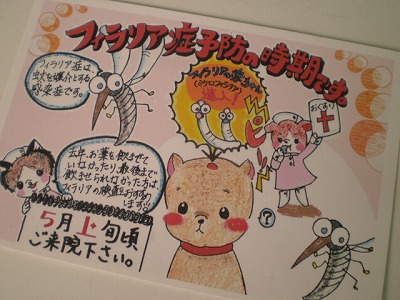 フィラリア症予防の時期です。
フィラリア症は
蚊を媒介とする
感染症です。
フィラリアの赤ちゃん
(ミクロフィラリア)
進入!
おくすり
去年、お薬を飲ませて
いなかったり、最後まで
飲ませられなかった方は、
フィラリアの検査をおすすめ
します!!
?
5月上旬頃
ご来院下さい。